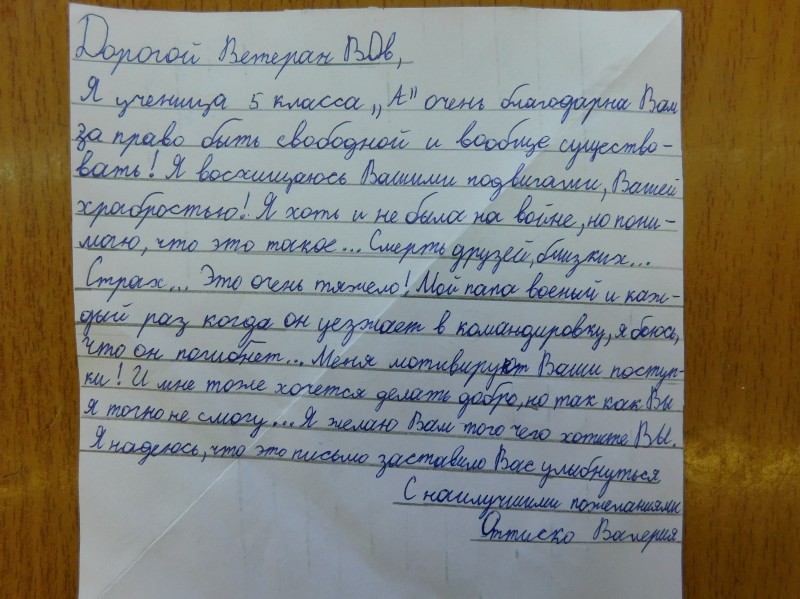 Дорогой Ветеран ВОв,
Я ученица 5 класса „А" очень благодарна Вам
за право быть свободной и вообще существо-
вать! Я восхищаюсь Вашими подвигами, Вашей
храбростью! Я хоть и не была на войне, но пони-
маю, что это такое... Смерть друзей, близких...
Страх... Это очень тяжело! Мой папа военый и каж-
дый раз когда он уезжает в командировку, я боюсь,
что он погибнет... Меня мотивируют Ваши поступ-
ки! И мне тоже хочется делать добро, но так как Вы
я точно не смогу... Я желаю Вам того чего хотите ВЫ.
Я надеюсь, что это письмо заставило Вас улыбнуться
С наилучшими пожеланиями
Валерия